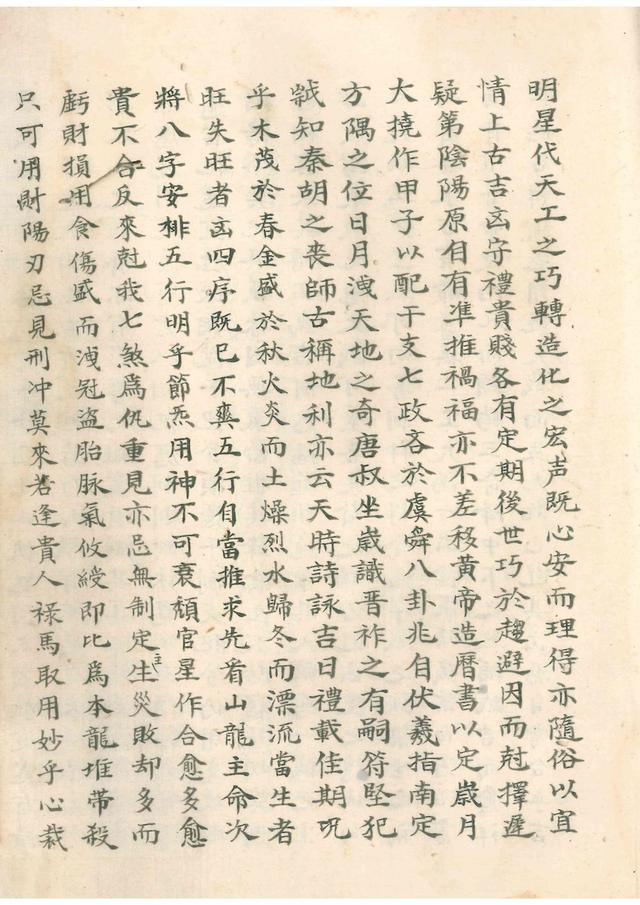 明星代天工之巧轉造化之宏声既心安而理得亦隨俗以宜
情上古吉凶守禮貴賤各有定期後世巧於趨避因而尅擇遲
疑第陰陽原自有準推禍福亦不差移黃帝造曆書以定歲月
大撓作甲子以配干支七政吝於虞舜八卦兆自伏羲指南定
方隅之位日月洩天地之奇唐叔坐歲識晋祚之有嗣符堅犯
鉞知秦胡之喪師古稱地利亦云天時詩詠吉日禮載佳期況
乎木茂於春金盛於秋火炎而土燥烈水歸冬而漂流當生者
旺失旺者凶四序既已不爽五行自當推求先看山龍主命次
將八字安排五行明乎節炁用神不可衰頹官星作合愈多愈
貴不合反來尅我七煞為仇重見亦忌無制定生主災敗却多而
虧財損用食傷盛而洩冠盜胎脉氣攸綬即比為本龍堆帶殺
只可用財陽刃忌見刑冲莫來若逢貴人祿馬取用妙乎心裁